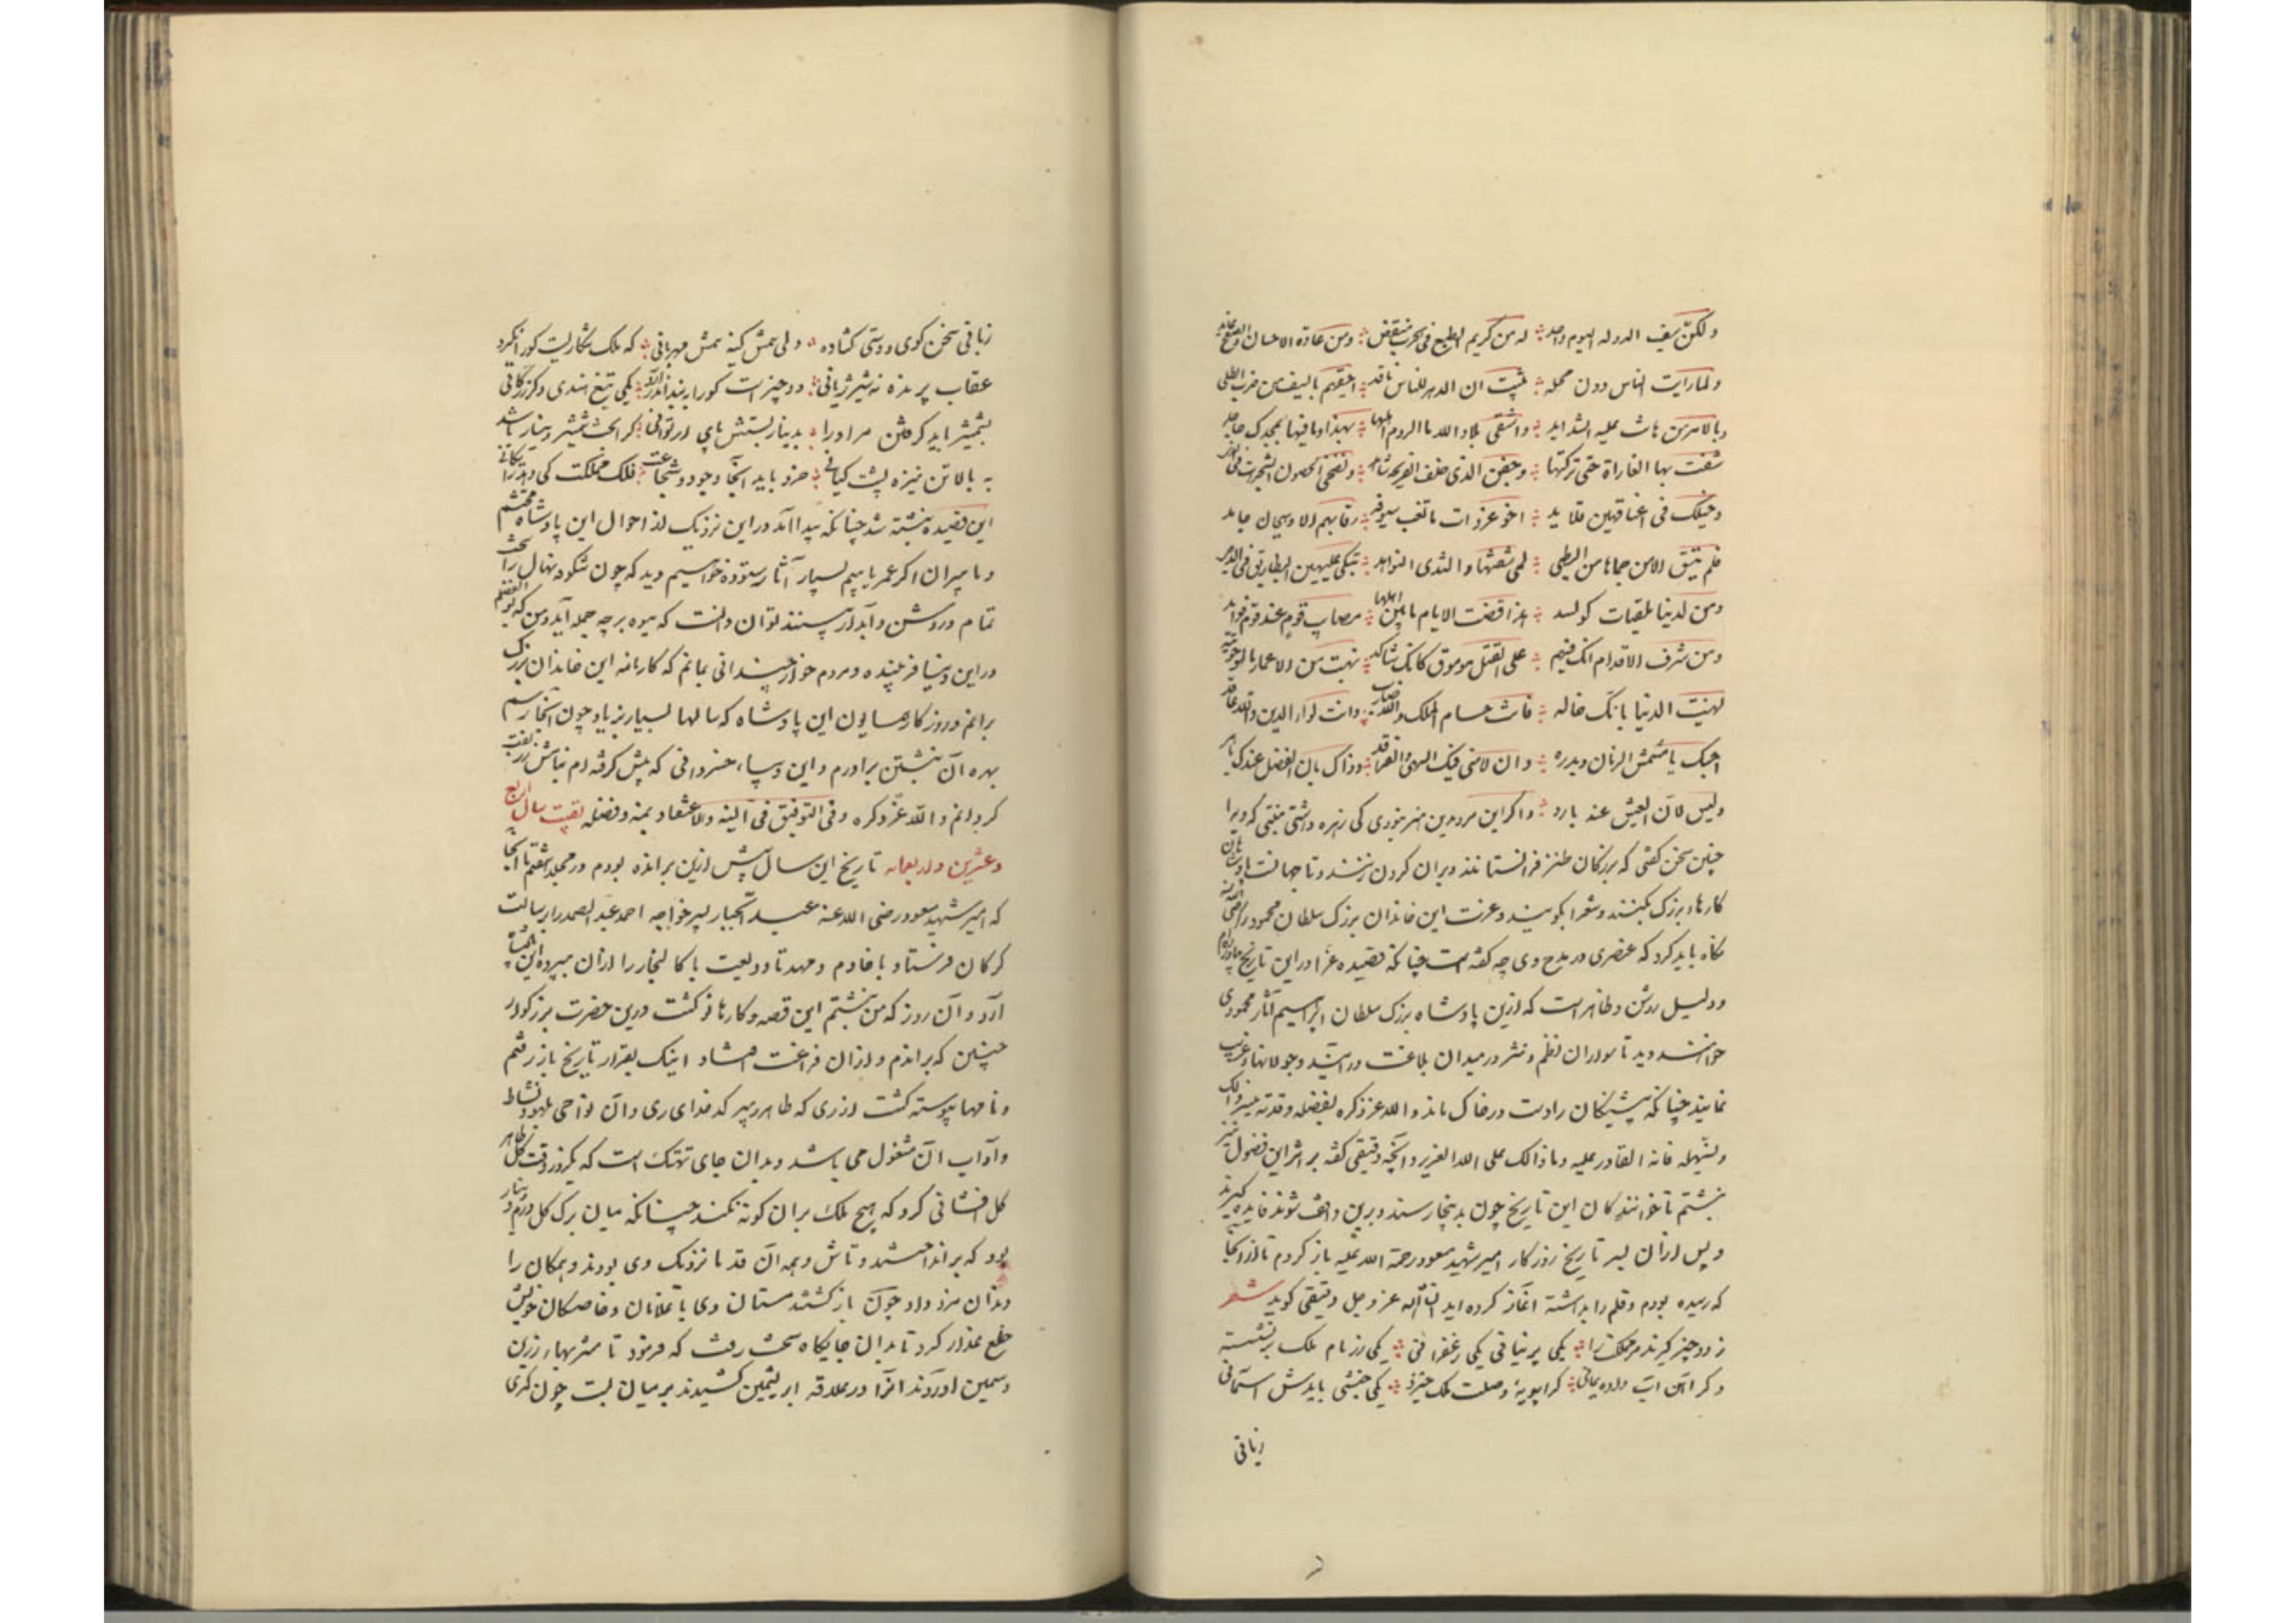 ولکنّ سیف الدوله الیوم واحد ؞ له من کریم الطبع فی الحرب منتقض ؞ ومن عادة الاحسان والصفح غامد
ولما رایت الناس دون محله ؞ تیقنت ان الدهر للناس ناقد ؞ احقهم بالسیف من ضرب الطلی
وبالامر من هانت علیه الشداید ؞ واشقی بلاد الله ما الروم اهلها ؞ بهذا وما فیها لمجدک جاحد
شننت بها الغاراة حتی ترکتها ؞ وجفن الذی خلف الفرنجه ساهد ؞ وتضحی الحصون المشمخرات فی الذری
وخیلک فی اعناقهن قلاید ؞ اخو غزوات ما تغب سیوفه ؞ رقابهم الا وسیحان جامد
فلم یبق الا من حماها من الظبی ؞ لمی شفتیها والثدی النواهد ؞ تبکی علیهن البطاریق فی الدجی
وهن لدینا ملقیات کواسد ؞ بذا قضت الایام ما بین اهلها ؞ مصایب قوم عند قوم فواید
ومن شرف الاقدام انک فیهم ؞ علی القتل موموق کانک شاکد ؞ نهبت من الاعمار ما لو حویته
لهنیت الدنیا بانک خالد ؞ فانت حسام الملک والله ضارب ؞ وانت لواء الدین والله عاقد
احبک یا شمس الزمان وبدره ؞ وان لامنی فیک السهی والفراقد ؞ وذاک بان الفضل عندک باهر
ولیس لان العیش عند بارد ؞ واکر این مردبدین هنر نبودی کی زهره داشتی متنبی که ویرا
چنین سخن کفتی که بزرکان طنز فرا نستانند وبران کردن زنند وتا جهانست پادشاهان
کارهاء بزرک بکنند وشعرا بکویند وعزت این خاندان بزرک سلطان محمود را رضی الله عنه
نکاه باید کرد که عنصری در مدح وی چه کفته است چنانکه قصیده غرا در این تاریخ بیاورده‌ام
ودلیل روشن وظاهر است که ازین پادشاه بزرک سلطان ابراهیم آثار محمودی
خواهند دید تا سواران نظم ونثر در میدان بلاغت درآیند وجولانهاء غریب
نمایند چنانکه پیشینکان را دست در خاک مانند والله عز ذکره بفضله وقدرته ییسر ذلک
ویسهله فانه القادر علیه وما ذالک علی الله العزیز وآنچه دقیقی کفته بر اثر این فصول نیز
نبشتم تا خوانندکان این تاریخ چون بدینجا رسند وبرین واقف شوند فایده کیرند
وپس ازان بسر تاریخ روزکار امیر شهید مسعود رحمة الله علیه باز کردم تا از آنجا
که رسیده بودم وقلم را بداشته آغاز کرده اید انشاءالله عز وجل دقیقی کوید شعر
ز دو چیز کیرند مر مملکت را ؞ یکی پرنیانی یکی زعفرانی ؞ یکی زر نام ملک بر نبشته
دکر آهن آب داده یمانی ؞ کرا بویهٔ وصلت ملک خیزد ؞ یکی جنبشی بایدش آسمانی
زبانی
زبانی سخن کوی ودستی کشاده ؞ دلی همش کینه همش مهربانی ؞ که ملک شکاریست کورا نکیرد
عقاب پرنده نه شیر ژیانی ؞ دو چیزست کورا به بند اندر آرد ؞ یکی تیغ هندی دکر زر کانی
بشمشیر باید کرفتن مر اورا ؞ بدینار بستنش پای ار توانی ؞ کرا بخت شمشیر ودینار باشد
به بالا تن نیزه پشت کیانی ؞ خرد باید آنجا وجود وشجاعت ؞ فلک مملکت کی دهد رایکانی
این قصیده نبشته شد چنانکه پیدا آمد در این نزدیک از احوال این پادشاه محتشم
وما پیران اکر عمر یابیم بسیار آثار ستوده خواهیم دید که چون شکوفه نهال را سخت
تمام وروشن وآبدار بینند توان دانست که میوه بر چه جمله آید ومن که بوالفضلم
در این دنیا فریبنده ومردم خوار چندانی بمانم که کارنامه این خاندان بزرک
برانم وروزکار همایون این پادشاه که سالها بسیار بزیاد چون آنجا رسم
بهره آن نبشتن برادرم واین دیباء خسروانی که پیش کرفته‌ام بنامش زربفت
کردانم والله عز ذکره وفی التوفیق فی النیه والاعتقاد بمنه وفضله بقیت سال اربع
وعشرین واربعمایه تاریخ این سال پیش ازین برانده بودم در مجلد هفتم تا آنجا
که امیر شهید مسعود رضی الله عنه عبدالجبار پسر خواجه احمد عبدالصمد را برسالت
کرکان فرستاد با خادم ومهد تا ودیعت باکالیجار را ازان بپرده این پادشاه
آرد وآن روز که من نبشتم این قصه وکارها نو کشت درین حضرت بزرکوار
چنین که براندم وازان فراغت افتاد اینک بقرار تاریخ باز رفتم
ونامها پیوسته کشت از ری که طاهر دبیر کدخدای ری وآن نواحی بلهو ونشاط
وآداب آن مشغول می باشد وبدان جای تهتک است که یکروز وقت کل طاهر
کل افشانی کرد که هیچ ملک بران کونه نکند چنانکه میان برک کل درم ودینار
بود که برانداختند وتاش وهمه آن قدما نزدیک وی بودند وهمکان را
دندان مزد داد چون باز کشتند مستان وی با غلامان وخاصکان خویش
خلع عذار کرد تا بدان جایکاه سخف رفت که فرمود تا مشربهاء زرین
وسیمین آوردند آنرا در علاقه ابریشمین کشیدند بر میان بست چون کمری